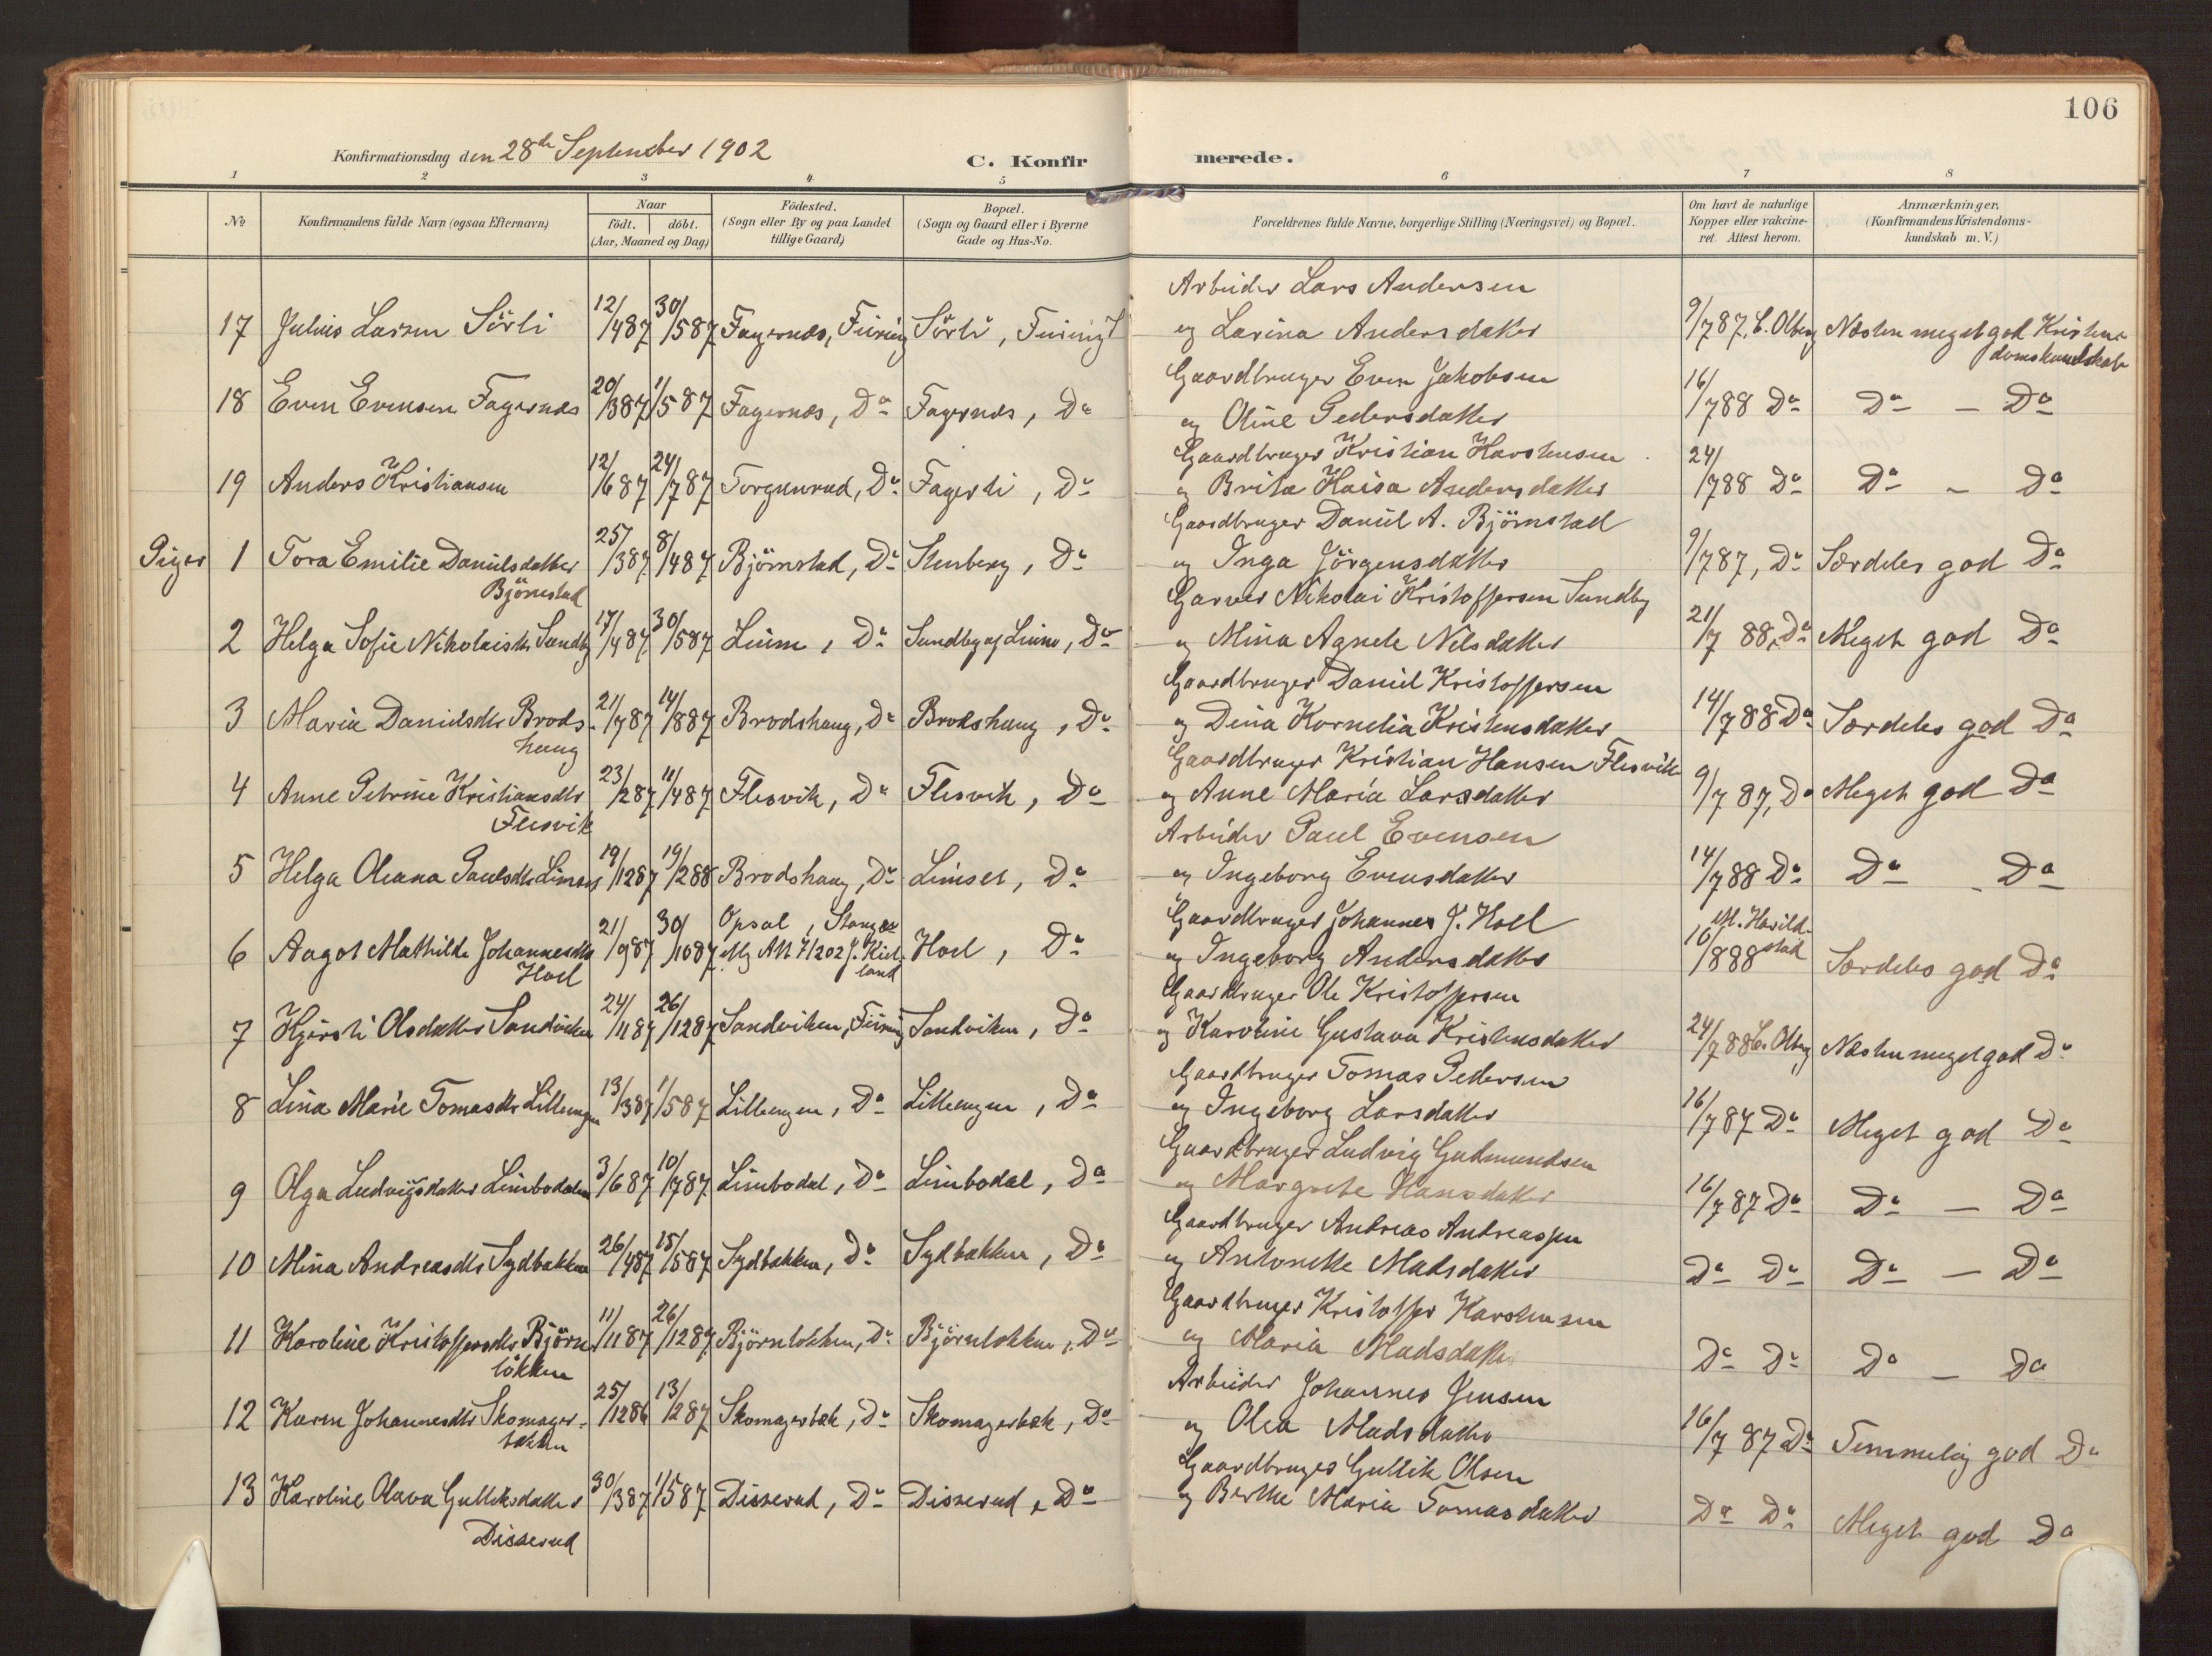 106
Konfirmationsdag den 28de September 1902
C. Konfirmerede.
1 2 3 4 5 6 7 8
No Konfirmandens fulde Navn (ogsaa Efternavn) Naar født. døbt. (Aar, Maaned og Dag) Födested. (Sogn eller By og paa Landet tillige Gaard) Bopæl. (Sogn og Gaard eller i Byerne Gade og Hus-No. Forældrenes fulde Navne, borgerlige Stilling (Næringsvei) og Bopæl. Om havt de naturlige Kopper eller vakcineret. Attest herom. Anmærkninger, (Konfirmandens Kristendomskundskab m. V.)
17 Julius Larsen Sörli 12/487 30/587 Fagernæs, Feiring Sörli, Feiring Arbeider Lars Andersen og Larina Andersdatter 9/787, C. Olberg Næsten meget god Kristendomskundskab
18 Even Evensen Fagernæs 20/387 1/587 Fagernæs, Do Fagernæs, Do Gaardbruger Even Jakobsen og Oline Pedersdatter 16/788 Do Do - Do
19 Anders Kristiansen 12/687 24/787 Torgunrud, Do Fagerli, Do Gaardbruger Kristian Karstensen og Brita Kaisa Andersdatter 24/788 Do Do - Do
Piger 1 Tora Emilie Danielsdatter Björnstad 25/387 8/487 Björnstad, Do Stenberg, Do Gaardbruger Daniel A. Björnstad og Inga Jörgensdatter 9/787, Do Særdeles god Do
2 Helga Sofie Nikolaisdtr Sundby 17/487 30/587 Liim, Do Sundby af Liim, Do Garver Nikolai Kristoffersen Sundby og Mina Agnete Nilsdatter 21/788, Do Meget god Do
3 Maria Danielsdtr Brodshaug 21/787 14/887 Brodshaug, Do Brodshaug, Do Gaardbruger Daniel Kristoffersen og Dina Kornelia Kristensdatter 14/788 Do Særdeles god Do
4 Anne Petrine Kristiansdtr Flesvik 23/287 11/487 Flesvik, Do Flesvik, Do Gaardbruger Kristian Hansen Flesvik og Anne Maria Larsdatter 9/787, Do Meget god Do
5 Helga Oleana Paulsdtr Limset 19/1287 19/288 Brodshaug, Do Limset, Do Arbeider Paul Evensen og Ingeborg Evensdatter 14/788 Do Do - Do
6 Aagot Mathilde Johannesdtr Hoel 21/987 30/1087 Opsal, Stange Att 7/202 J. Kielland Hoel, Do Gaardbruger Johannes J. Hoel og Ingeborg Andersdatter 10/888 M. Havildstad Særdeles god Do
7 Kjersti Olsdatter Sandviken 24/1187 26/1287 Sandviken, Feiring Sandviken, Do Gaardbruger Ole Kristoffersen og Karoline Gustava Kristensdatter 24/788 C. Olberg Næsten meget god Do
8 Lina Marie Tomasdtr Lillengen 13/387 1/587 Lillengen, Do Lillengen, Do Gaardbruger Tomas Pedersen og Ingeborg Larsdatter 16/787 Do Meget god Do
9 Olga Ludvigsdatter Limbodalen 3/687 10/787 Limbodal, Do Limbodal, Do Gaardbruger Ludvig Gudmundsen og Margrete Hansdatter 16/787 Do Do - Do
10 Mina Andreasdtr Sydbakken 26/487 15/587 Sydbakken, Do Sydbakken, Do Gaardbruger Andreas Andreassen og Antonette Madsdatter Do Do Do - Do
11 Karoline Kristoffersdtr Björnlökken 11/1187 26/1287 Björnlökken, Do Björnlökken, Do Gaardbruger Kristoffer Karstensen og Maria Madsdatter Do Do Do - Do
12 Karen Johannesdtr Skomagerbakken 25/1286 13/287 Skomagerbak, Do Skomagerbak, Do Arbeider Johannes Jensen og Olea Madsdatter 16/787 Do Temmelig god Do
13 Karoline Olava Gulliksdatter Disserud 30/387 1/587 Disserud, Do Disserud, Do Gaardbruger Gullik Olsen og Berthe Maria Tomasdatter Do Do Meget god Do